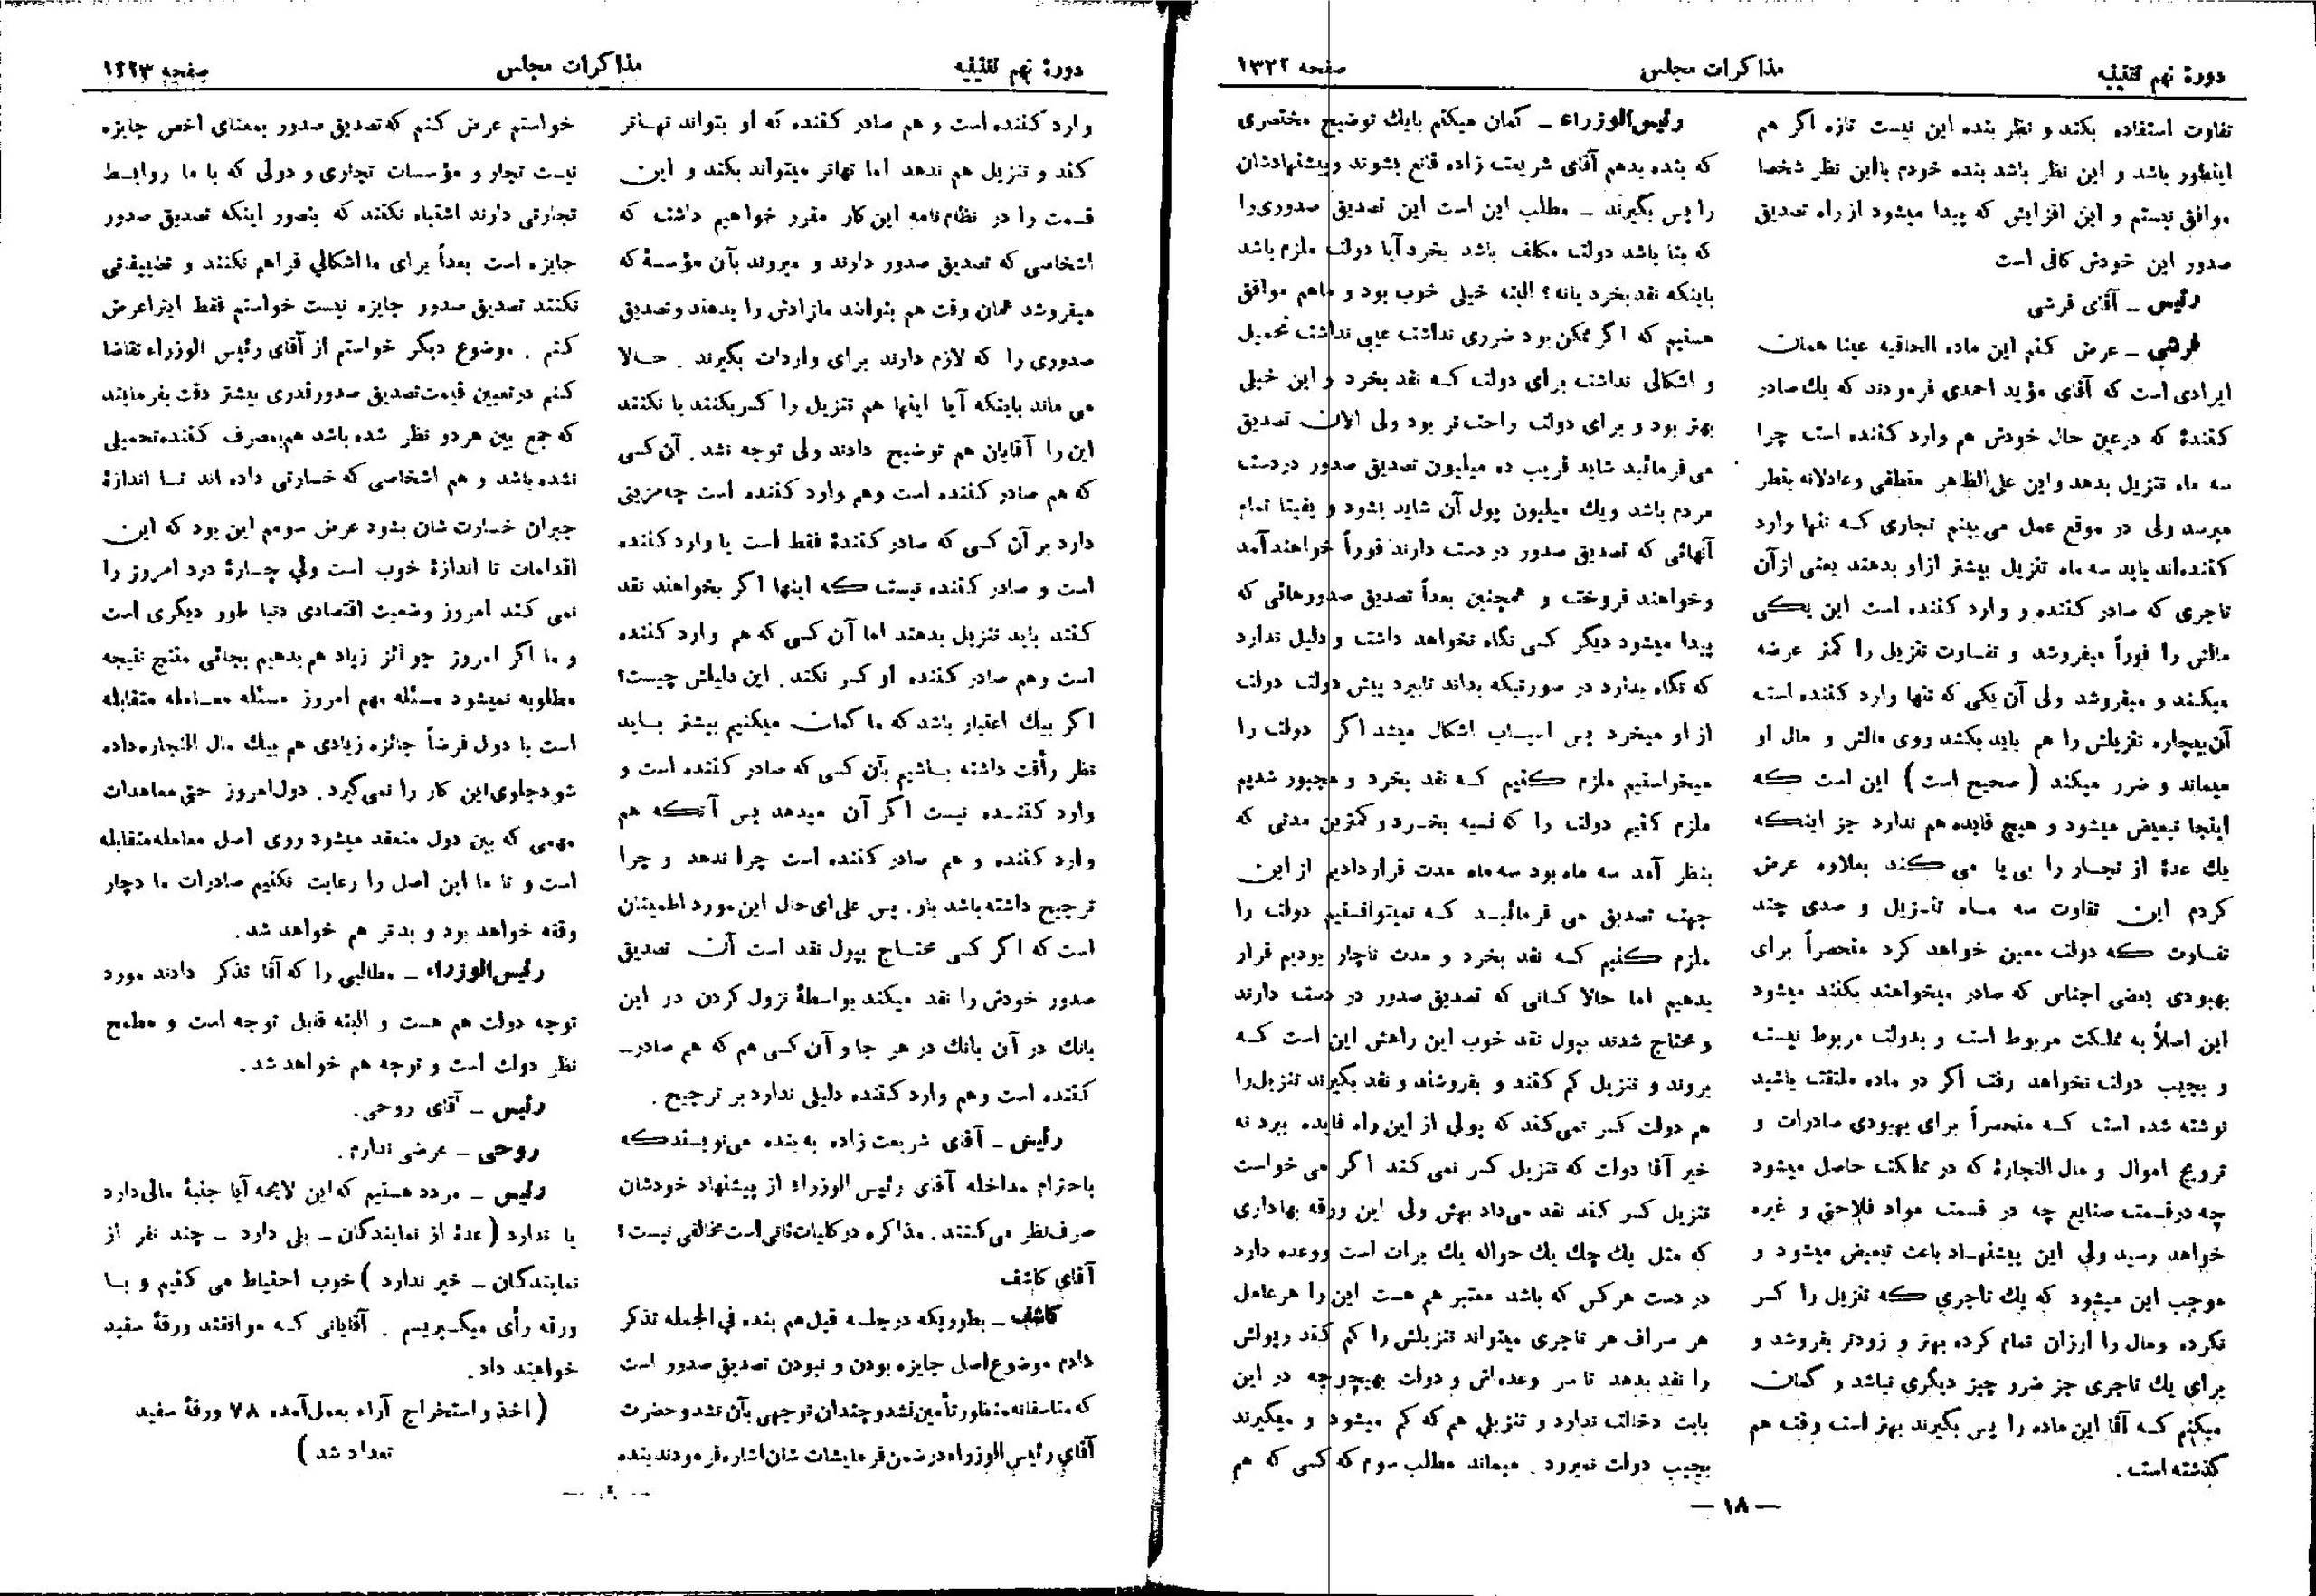 دورهٔ نهم تقنینیه
مذاکرات مجلس
صفحه ۱۳۲۲
تفاوت استفاده بکند و نظر بنده این نیست تازه اگر هم
اینطور باشد و این نظر باشد بنده خودم باین نظر شخصا
موافق نیستم و این افزایش که پیدا میشود از راه تصدیق
صدور این خودش کافی است
رئیس ـ آقای فرشی
فرشی ـ عرض کنم این ماده الحاقیه عینا همان
ایرادی است که آقای مؤید احمدی فرمودند که یك صادر
کنندهٔ که درعین حال خودش هم وارد کننده است چرا
سه ماه تنزیل بدهد و این علی‌الظاهر منطقی و عادلانه بنظر
میرسد ولی در موقع عمل می‌بینم تجاری که تنها وارد
کننده‌اند باید سه ماه تنزیل بیشتر ازاو بدهند یعنی از آن
تاجری که صادر کننده و وارد کننده است این یکی
مالش را فوراً میفروشد و تفاوت تنزیل را کمتر عرضه
میکند و میفروشد ولی آن یکی که تنها وارد کننده است
آن بیچاره تنزیلش را هم باید بکشد روی مالش و مال او
میماند و ضرر میکند ( صحیح است ) این است که
اینجا تبعیض میشود و هیچ فایده هم ندارد جز اینکه
یك عدهٔ از تجار را بی پا می کند بعلاوه عرض
کردم این تفاوت سه ماه تنزیل و صدی چند
تفاوت که دولت معین خواهد کرد منحصراً برای
بهبودی بعضی اجناس که صادر میخواهند بکنند میشود
این اصلاً به مملکت مربوط است و بدولت مربوط نیست
و بجیب دولت نخواهد رفت اگر در ماده ملتفت باشید
نوشته شده است که منحصراً برای بهبودی صادرات و
ترویج اموال و مال التجارهٔ که در مملکت حاصل میشود
چه درقسمت صنایع چه در قسمت مواد فلاحتی و غیره
خواهد رسید ولی این پیشنهاد باعث تبعیض میشود و
موجب این میشود که یك تاجری که تنزیل را کسر
نکرده ومال را ارزان تمام کرده بهتر و زودتر بفروشد و
برای یك تاجری جز ضرر چیز دیگری نباشد و گمان
میکنم که آقا این ماده را پس بگیرند بهتر است وقت هم
گذشته است .
رئیس‌الوزراء ـ گمان میکنم بایك توضیح مختصری
که بنده بدهم آقای شریعت زاده قانع بشوند وپیشنهادشان
را پس بگیرند ـ مطلب این است این تصدیق صدوری‌را
که بنا باشد دولت مکلف باشد بخرد آیا دولت ملزم باشد
باینکه نقد بخرد یانه؟ البته خیلی خوب بود و ماهم موافق
هستیم که اگر ممکن بود ضرری نداشت عیبی نداشت تحمیل
و اشکالی نداشت برای دولت که نقد بخرد و این خیلی
بهتر بود و برای دولت راحت‌تر بود ولی الان تصدیق
می‌فرمائید شاید قریب ده میلیون تصدیق صدور دردست
مردم باشد ویك میلیون پول آن شاید بشود و یقینا تمام
آنهائی که تصدیق صدور در دست دارند فوراً خواهند آمد
وخواهند فروخت و همچنین بعداً تصدیق صدورهائی که
پیدا میشود دیگر کسی نگاه نخواهد داشت و دلیل ندارد
که نگاه بدارد در صورتیکه بداند تابرد پیش دولت دولت
از او میخرد پس اسباب اشکال میشد اگر دولت را
میخواستیم ملزم کنیم که نقد بخرد و مجبور شدیم
ملزم کنیم دولت را که نسیه بخرد و کمترین مدتی که
بنظر آمد سه ماه بود سه ماه مدت قرار دادیم از این
جهت تصدیق می فرمائید که نمیتوانستیم دولت را
ملزم کنیم که نقد بخرد و مدت ناچار بودیم قرار
بدهیم اما حالا کسانی که تصدیق صدور در دست دارند
و محتاج شدند بپول نقد خوب این راهش این است که
بروند و تنزیل کم کنند و بفروشند و نقد بگیرند تنزیل‌را
هم دولت کسر نمی‌کند که پولی از این راه فایده ببرد نه
خیر آقا دولت که تنزیل کسر نمی کند اگر می خواست
تنزیل کسر کند نقد می‌داد بهش ولی این ورقه بهاداری
که مثل یك چك یك حواله یك برات است ووعده دارد
در دست هر کس که باشد معتبر هم هست این را هر عامل
هر صراف هر تاجری میتواند تنزیلش را کم کند وپولش
را نقد بدهد تا سر وعده‌اش و دولت بهیچوجه در این
بابت دخالت ندارد و تنزیلی هم که کم میشود و میگیرند
بجیب دولت نمیرود . میماند مطلب سوم که کسی که هم
— ۱۸ —
دورهٔ نهم تقنینیه
مذاکرات مجلس
صفحه ۱۳۲۳
وارد کننده است و هم صادر کننده که او بتواند تهاتر
کند و تنزیل هم ندهد اما تهاتر میتواند بکند و این
قسمت را در نظام‌نامه این کار مقرر خواهیم داشت که
اشخاصی که تصدیق صدور دارند و میروند بآن مؤسسهٔ که
میفروشد همان وقت هم بتوانند مازادش را بدهند وتصدیق
صدوری را که لازم دارند برای واردات بگیرند . حالا
می ماند باینکه آیا اینها هم تنزیل را کسر بکنند یا نکنند
این را آقایان هم توضیح دادند ولی توجه نشد . آن کسی
که هم صادر کننده است وهم وارد کننده است چه مزیتی
دارد بر آن کسی که صادر کنندهٔ فقط است یا وارد کننده
است و صادر کننده نیست که اینها اگر بخواهند نقد
کنند باید تنزیل بدهند اما آن کسی که هم وارد کننده
است وهم صادر کننده او کسر نکند . این دلیلش چیست؟
اگر بیك اعتبار باشد که ما گمان میکنیم بیشتر باید
نظر رأفت داشته باشیم بآن کسی که صادر کننده است و
وارد کننده نیست اگر آن میدهد پس آنکه هم
وارد کننده و هم صادر کننده است چرا ندهد و چرا
ترجیح داشته باشد باو . پس علی‌ای‌حال این مورد اطمینان
است که اگر کسی محتاج بپول نقد است آن تصدیق
صدور خودش را نقد میکند بواسطهٔ نزول کردن در این
بانك در آن بانك در هر جا و آن کسی هم که هم صادرـ
کننده است وهم وارد کننده دلیلی ندارد بر ترجیح .
رئیس ـ آقای شریعت زاده به بنده می‌نویسند که
باحترام مداخله آقای رئیس الوزراء از پیشنهاد خودشان
صرف‌نظر می‌کنند . مذاکره در کلیات ثانی است مخالفی نیست؟
آقای کاشف
کاشف ـ بطوریکه درجلسه قبل هم بنده فی‌الجمله تذکر
دادم موضوع اصل جایزه بودن و نبودن تصدیق صدور است
که متأسفانه منظور تأمین نشد و چندان توجهی بآن نشد و حضرت
آقای رئیس الوزراء در ضمن فرمایشات شان اشاره فرمودند بنده
خواستم عرض کنم که تصدیق صدور بمعنای اخص جایزه
نیست تجار و مؤسسات تجاری و دولی که با ما روابط
تجارتی دارند اشتباه نکنند که بتصور اینکه تصدیق صدور
جایزه است بعداً برای ما اشکالی فراهم نکنند و تضییقاتی
نکنند تصدیق صدور جایزه نیست خواستم فقط اینرا عرض
کنم . موضوع دیگر خواستم از آقای رئیس الوزراء تقاضا
کنم در تعیین قیمت تصدیق صدور قدری بیشتر دقت بفرمایند
که جمع بین هر دو نظر شده باشد هم بمصرف کننده تحمیلی
نشده باشد و هم اشخاصی که خسارتی داده اند تا اندازهٔ
جبران خسارت شان بشود عرض سومم این بود که این
اقدامات تا اندازهٔ خوب است ولی چارهٔ درد امروز را
نمی کند امروز وضعیت اقتصادی دنیا طور دیگری است
و ما اگر امروز جوائز زیاد هم بدهیم بجائی منتج نتیجه
مطلوبه نمیشود مسئله مهم امروز مسئله معامله متقابله
است با دول فرضاً جائزه زیادی هم بیك مال التجاره داده
شود جلوی این کار را نمی‌گیرد . دول امروز حتی معاهدات
مهمی که بین دول منعقد میشود روی اصل معامله متقابله
است و تا ما این اصل را رعایت نکنیم صادرات ما دچار
وقفه خواهد بود و بدتر هم خواهد شد .
رئیس‌الوزراء ـ مطالبی را که آقا تذکر دادند مورد
توجه دولت هم هست و البته قابل توجه است و مطمح
نظر دولت است و توجه هم خواهد شد .
رئیس ـ آقای روحی .
روحی ـ عرضی ندارم .
رئیس ـ مردد هستیم که این لایحه آیا جنبهٔ مالی دارد
یا ندارد ( عدهٔ از نمایندگان ـ بلی دارد ـ چند نفر از
نمایندگان ـ خیر ندارد ) خوب احتیاط می کنیم و با
ورقه رأی میگیریم . آقایانی که موافقند ورقهٔ سفید
خواهند داد .
( اخذ و استخراج آراء بعمل آمده ۷۸ ورقهٔ سفید
تعداد شد )